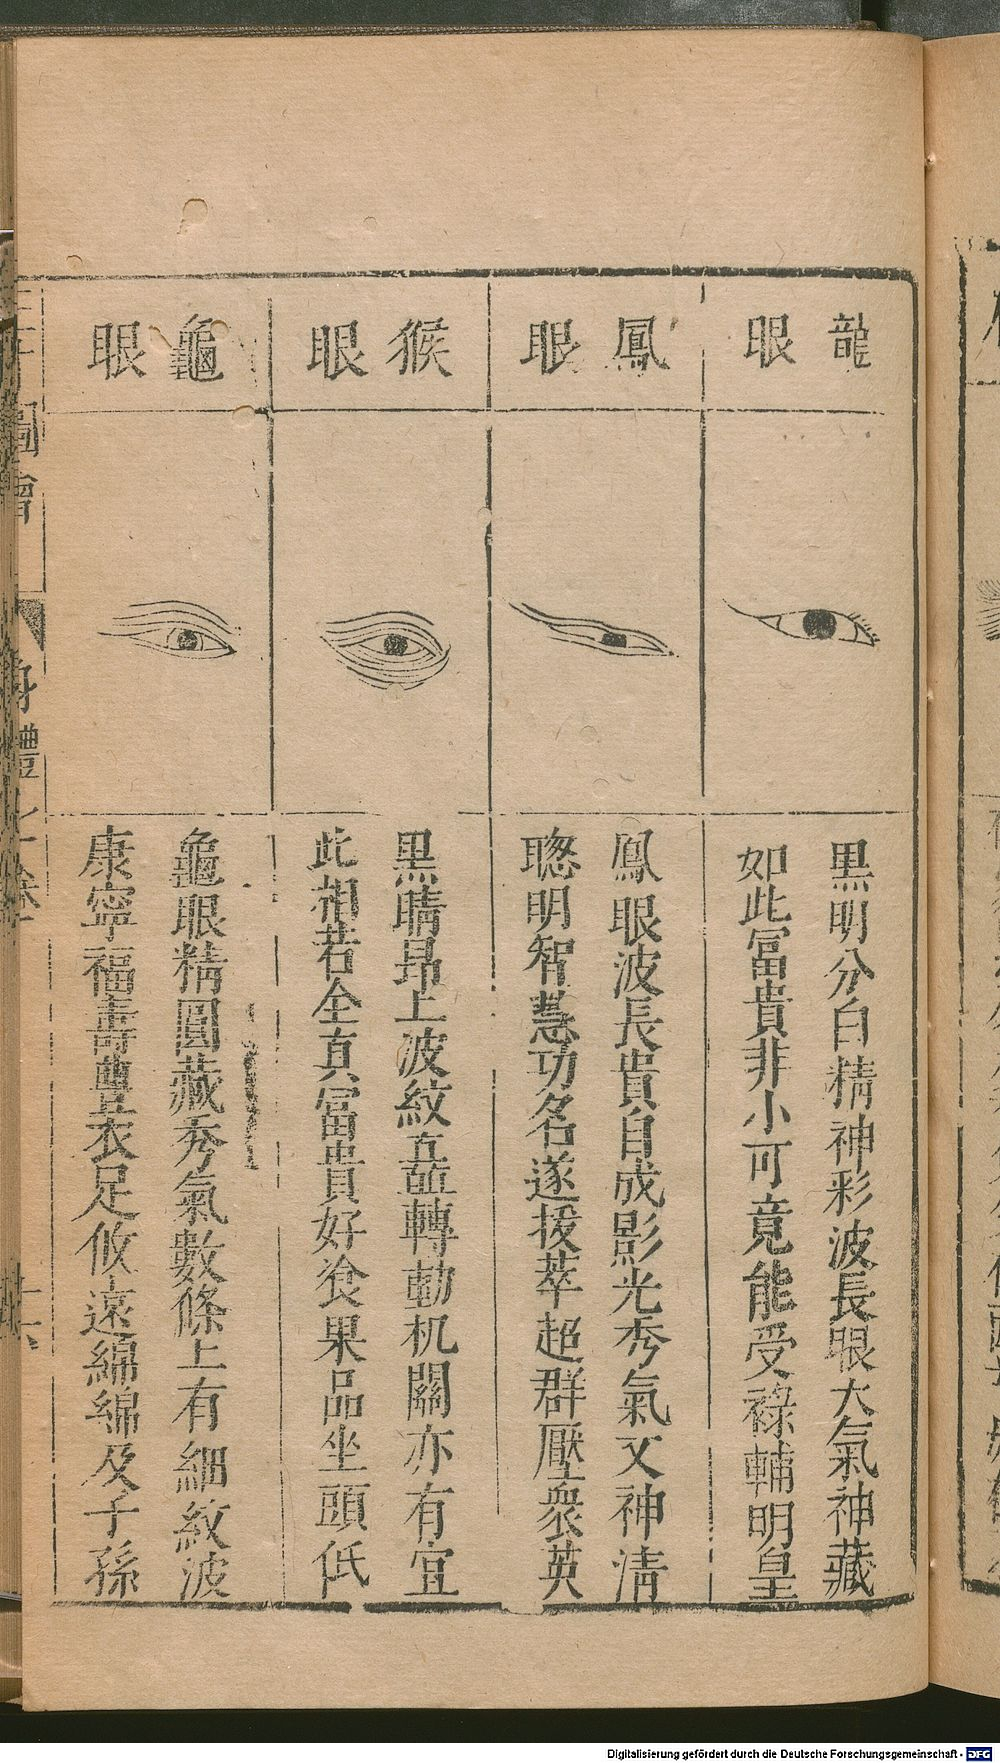 龍眼
黒明分白精神彩波長眼大氣神藏
如此冨貴非小可竟能受祿輔明皇
鳳眼
鳳眼波長貴自成影光秀氣又神淸
聦明智慧功名遂拔萃超群壓衆英
猴眼
黒睛昻上波紋矗轉動机關亦有宜
此相若全真冨貴好飡果品坐頭低
龜眼
龜眼精圓藏秀氣數條上有細紋波
康寧福壽豊衣足攸遠綿綿及子孫
圖會
身體
Digitalisierung gefördert durch die Deutsche Forschungsgemeinschaft - DFG